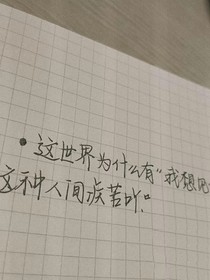 这世界为什么有“我想
这种人间疾苦吖。”